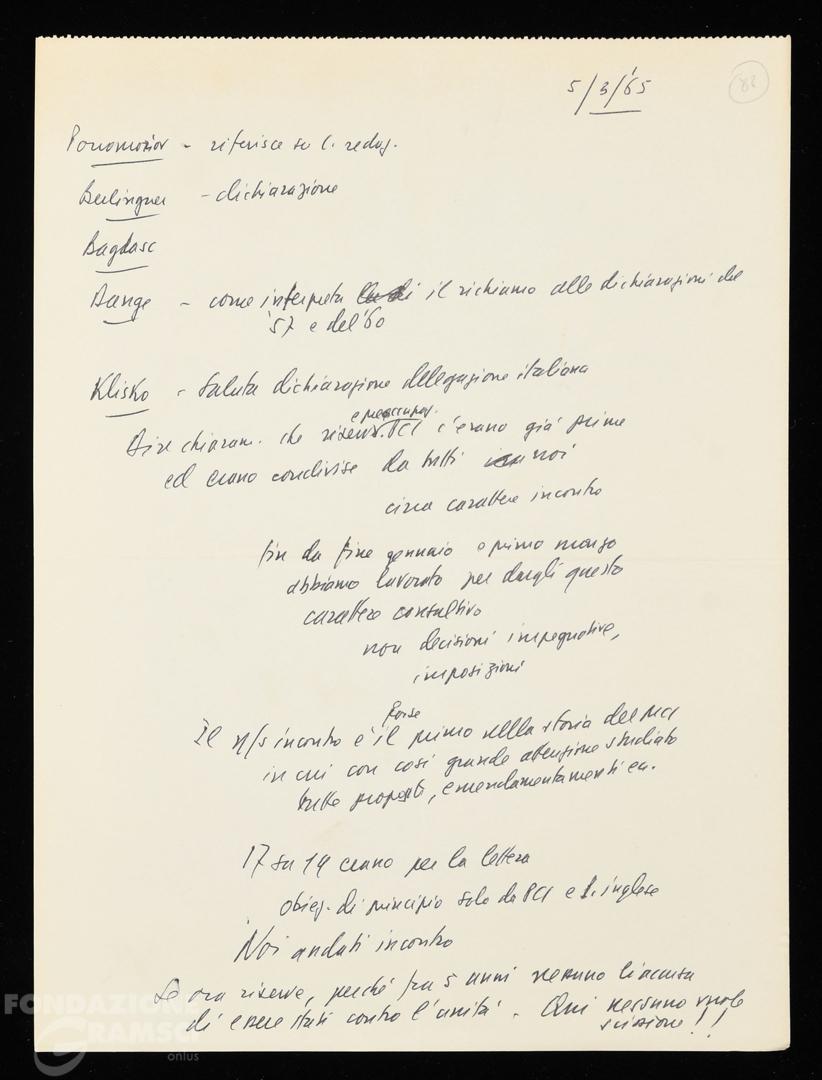 5/3/'65
82
Ponomariov - riferisce su C. redaz.
Berlinguer - dichiarazione
Bagdasc
Dange - come interpreta il richiamo alle dichiarazioni del
'57 e del '60
Klisko - Saluta dichiarazione delegazione italiana
e preoccupaz.
Dire chiaram. che riserve PCI c'erano già prima
ed erano condivise da tutti noi
circa carattere incontro
fin da fine gennaio e primo marzo
abbiamo lavorato per dargli questo
carattere consultivo
non decisioni impegnative,
imposizioni
forse
Il n/s incontro è il primo nella storia del MCI
in cui con così grande attenzione studiato
tutte proposte, emendamentamenti ecc.
17 su 19 erano per la lettera
obiez. di principio solo da PCI e P. inglese
Noi andati incontro
Se ora riserve, perché fra 5 anni nessuno li accusa
di essere stati contro l'unità. Qui nessuno vuole
scissione!!
FONDAZIONE
GRAMSCI
onlus